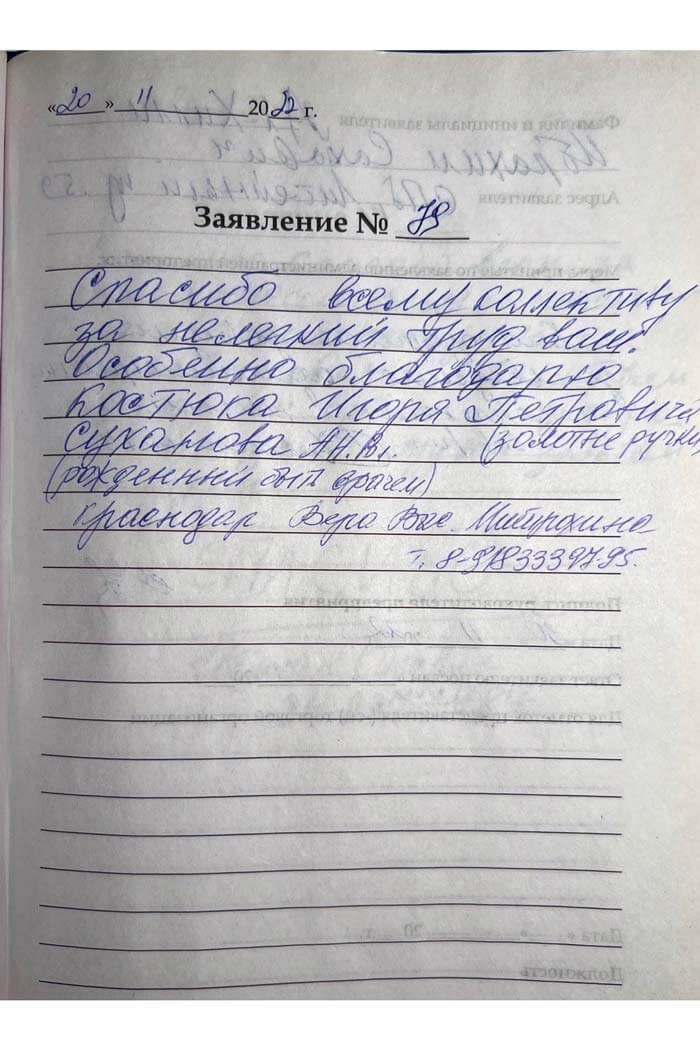 «20» 11 2022 г.
Заявление № 79
Спасибо всему коллективу
за нелегкий труд ваш.
Особенно благодарю
Костюка Игоря Петровича,
Суханова (золотые ручки)
(рожденный быть врачем)
Краснодар Вера Вас.
т. 8-9183339795.